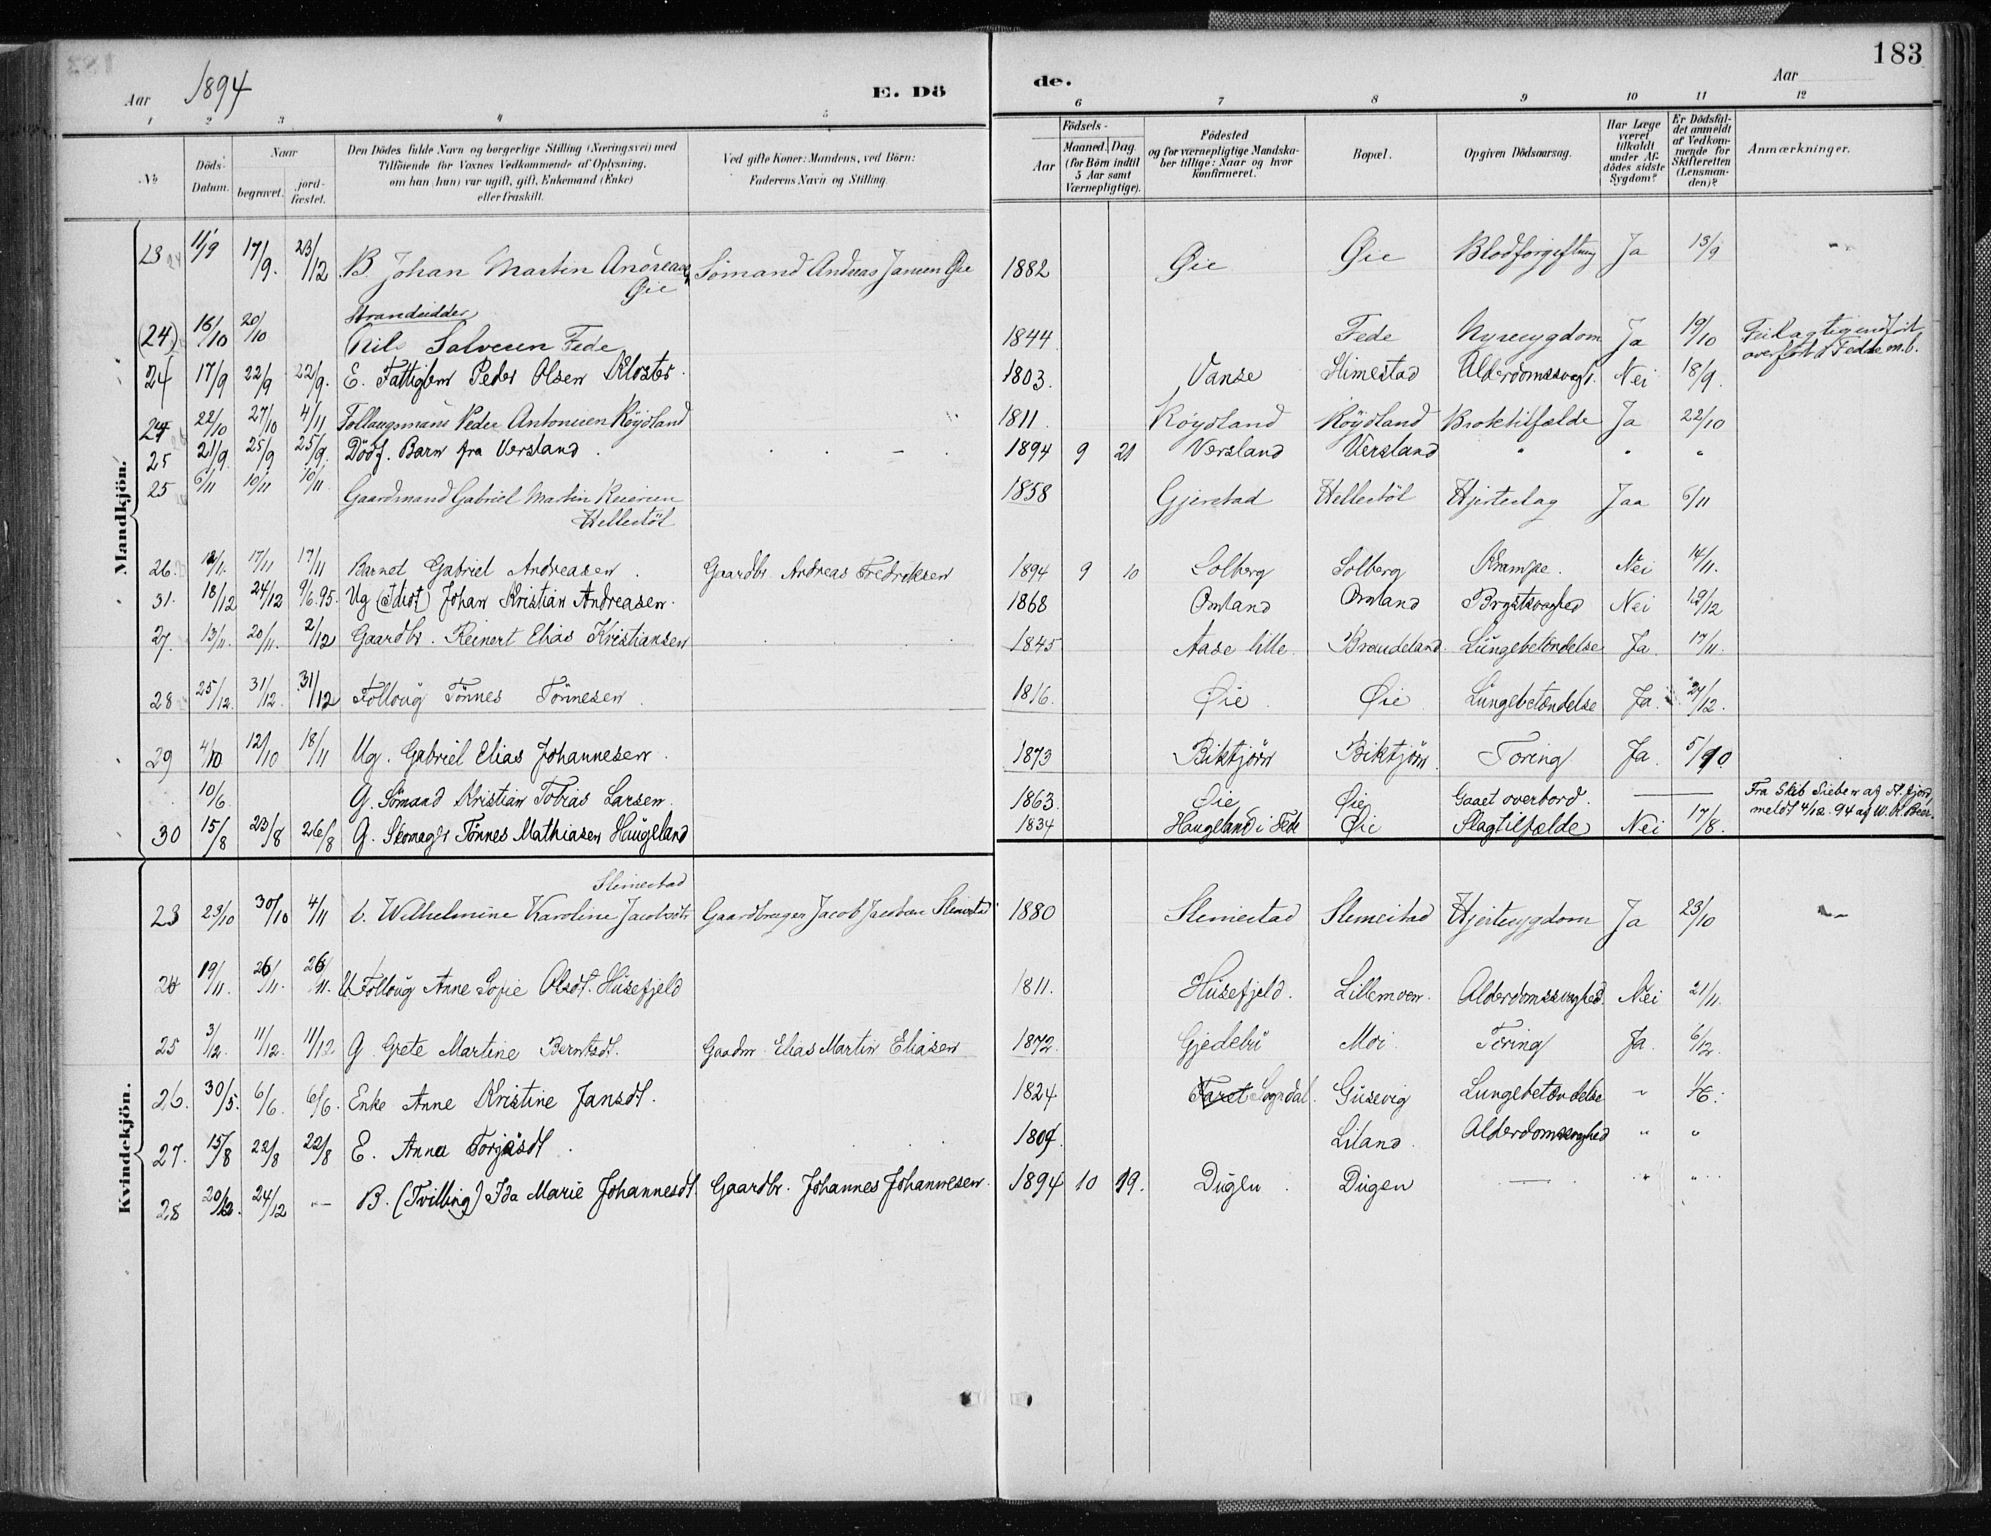 183
Aar 1894 E. Dö de. Aar
1 2 3 4 5 6 7 8 9 10 11 12
No
Döds-Datum.
Naar
begravet.
jordfæstet.
Den Dödes fulde Navn og borgerlige Stilling (Næringsvei) med
Tilföiende for Voxnes Vedkommende af Oplysning,
om han (hun) var ugift, gift, Enkemand (Enke)
eller fraskilt.
Ved gifte Koner: Mandens, ved Börn:
Faderens Navn og Stilling.
Aar
Födsels-
Maaned. Dag.
(for Börn indtil
5 Aar samt
Værnepligtige).
Födested
og for værnepligtige Mandskaber
tillige: Naar og hvor
Konfirmeret.
Bopæl.
Opgiven Dödsaarsag.
Har Læge
været
tilkaldt
under Afdödes
sidste
Sygdom?
Er Dödsfaldet
anmeldt
af Vedkommende
for
Skifteretten
(Lensmanden)?
Anmærkninger.
Mandkjön.
23 11/9 17/9. 23/12 B. Johan Martin Andreas Øie Sömand Andreas Jansen Øie 1882 Øie Øie Blodforgiftning Ja 13/9 -
(24) 16/10 20/10 Strandsidder Nils Salvesen Fede 1844 Fede Nyresygdom Ja 19/10 overfört i Fedde m.b.
24 17/9 22/9 22/9. E. Fattiglem Peder Olsen Kloster. 1803. Vanse Slimestad Alderdomssvagh. Nei 18/9.
24 22/10 27/10 4/11 Follaugsmand Peder Antonisen Röydland 1811. Röydland Röydland Broktilfælde Ja 22/10
25 21/9 25/9 25/9. Dödf. Barn fra Versland. 1894 9 21 Versland Versland " " "
25 6/11 10/11 10/11 Gaardmand Gabriel Martin Reiersen Hellestöl 1858 Gjerstad Hellestöl Hjerteslag Jaa 6/11
26. 12/11. 17/11 17/11 Barnet Gabriel Andreasen. Gaardbr. Andreas Fredriksen 1894 9 10 Solberg Solberg Krampe. Nei 14/11.
31. 18/12 24/12 9/6.95. Ug. (Idiot) Johan Kristian Andreasen. 1868 Omland Omland Brystsvaghed Nei 19/12
27. 13/11. 20/11. 2/12 Gaardbr. Reinert Elias Kristiansen 1845 Aase lille. Braudeland. Lungebetændelse Ja. 17/11.
28 25/12. 31/12. 31/12 Folloug Tönnes Tönnesen. 1816. Øie. Øie Lungebetændelse Ja. 27/12.
29 4/10 12/10 18/11 Ug. Gabriel Elias Johannesen. 1873 Biktjörn Biktjörn. Toring Ja. 5/10.
10/6. G. Sömand Kristian Tobias Larsen. 1863. Øie Øie Gaaet overbord. — Fra Skib Sieben meldt 4/12.94 af
30 15/8 23/8 26/8 G. Skomager Tönnes Mathiasen Haugeland 1834 Haugeland i Fede Øie Slagtilfælde Nei 17/8.
Kvindekjön.
23 23/10 30/10 4/11 Slimestad U. Wilhelmine Karoline Jacobsdtr Gaardbruger Jacob Jacobsen Slimestad 1880 Slimestad Slimestad Hjertesygdom Ja 23/10 -
24 19/11. 26/11. 26/11. U. Folloug Anne Sofie Olsdt. Husefjeld 1811. Husefjeld. Lillemoen. Alderdomssvaghed. Nei 21/11.
25 3/12. 11/12. 11/12 G. Grete Martine Berntsdt. Gaadm. Elias Martin Eliasen 1872. Gjedebu Moi Toring Ja. 6/12.
26. 30/5. 6/6. 6/6. Enke Anne Kristine Jansdt. 1824 Sogndal. Gusevig Lungebetændelse " 1/6.
27. 15/8 22/8 22/8 E. Anna Torjusdt. 1809. Liland. Alderdomssvaghed " "
28 20/12. 24/12 — B. (Tvilling) Ida Marie Johannesdt. Gaardbr. Johannes Johannesen. 1894 10 19. Dugen. Dugen — " "